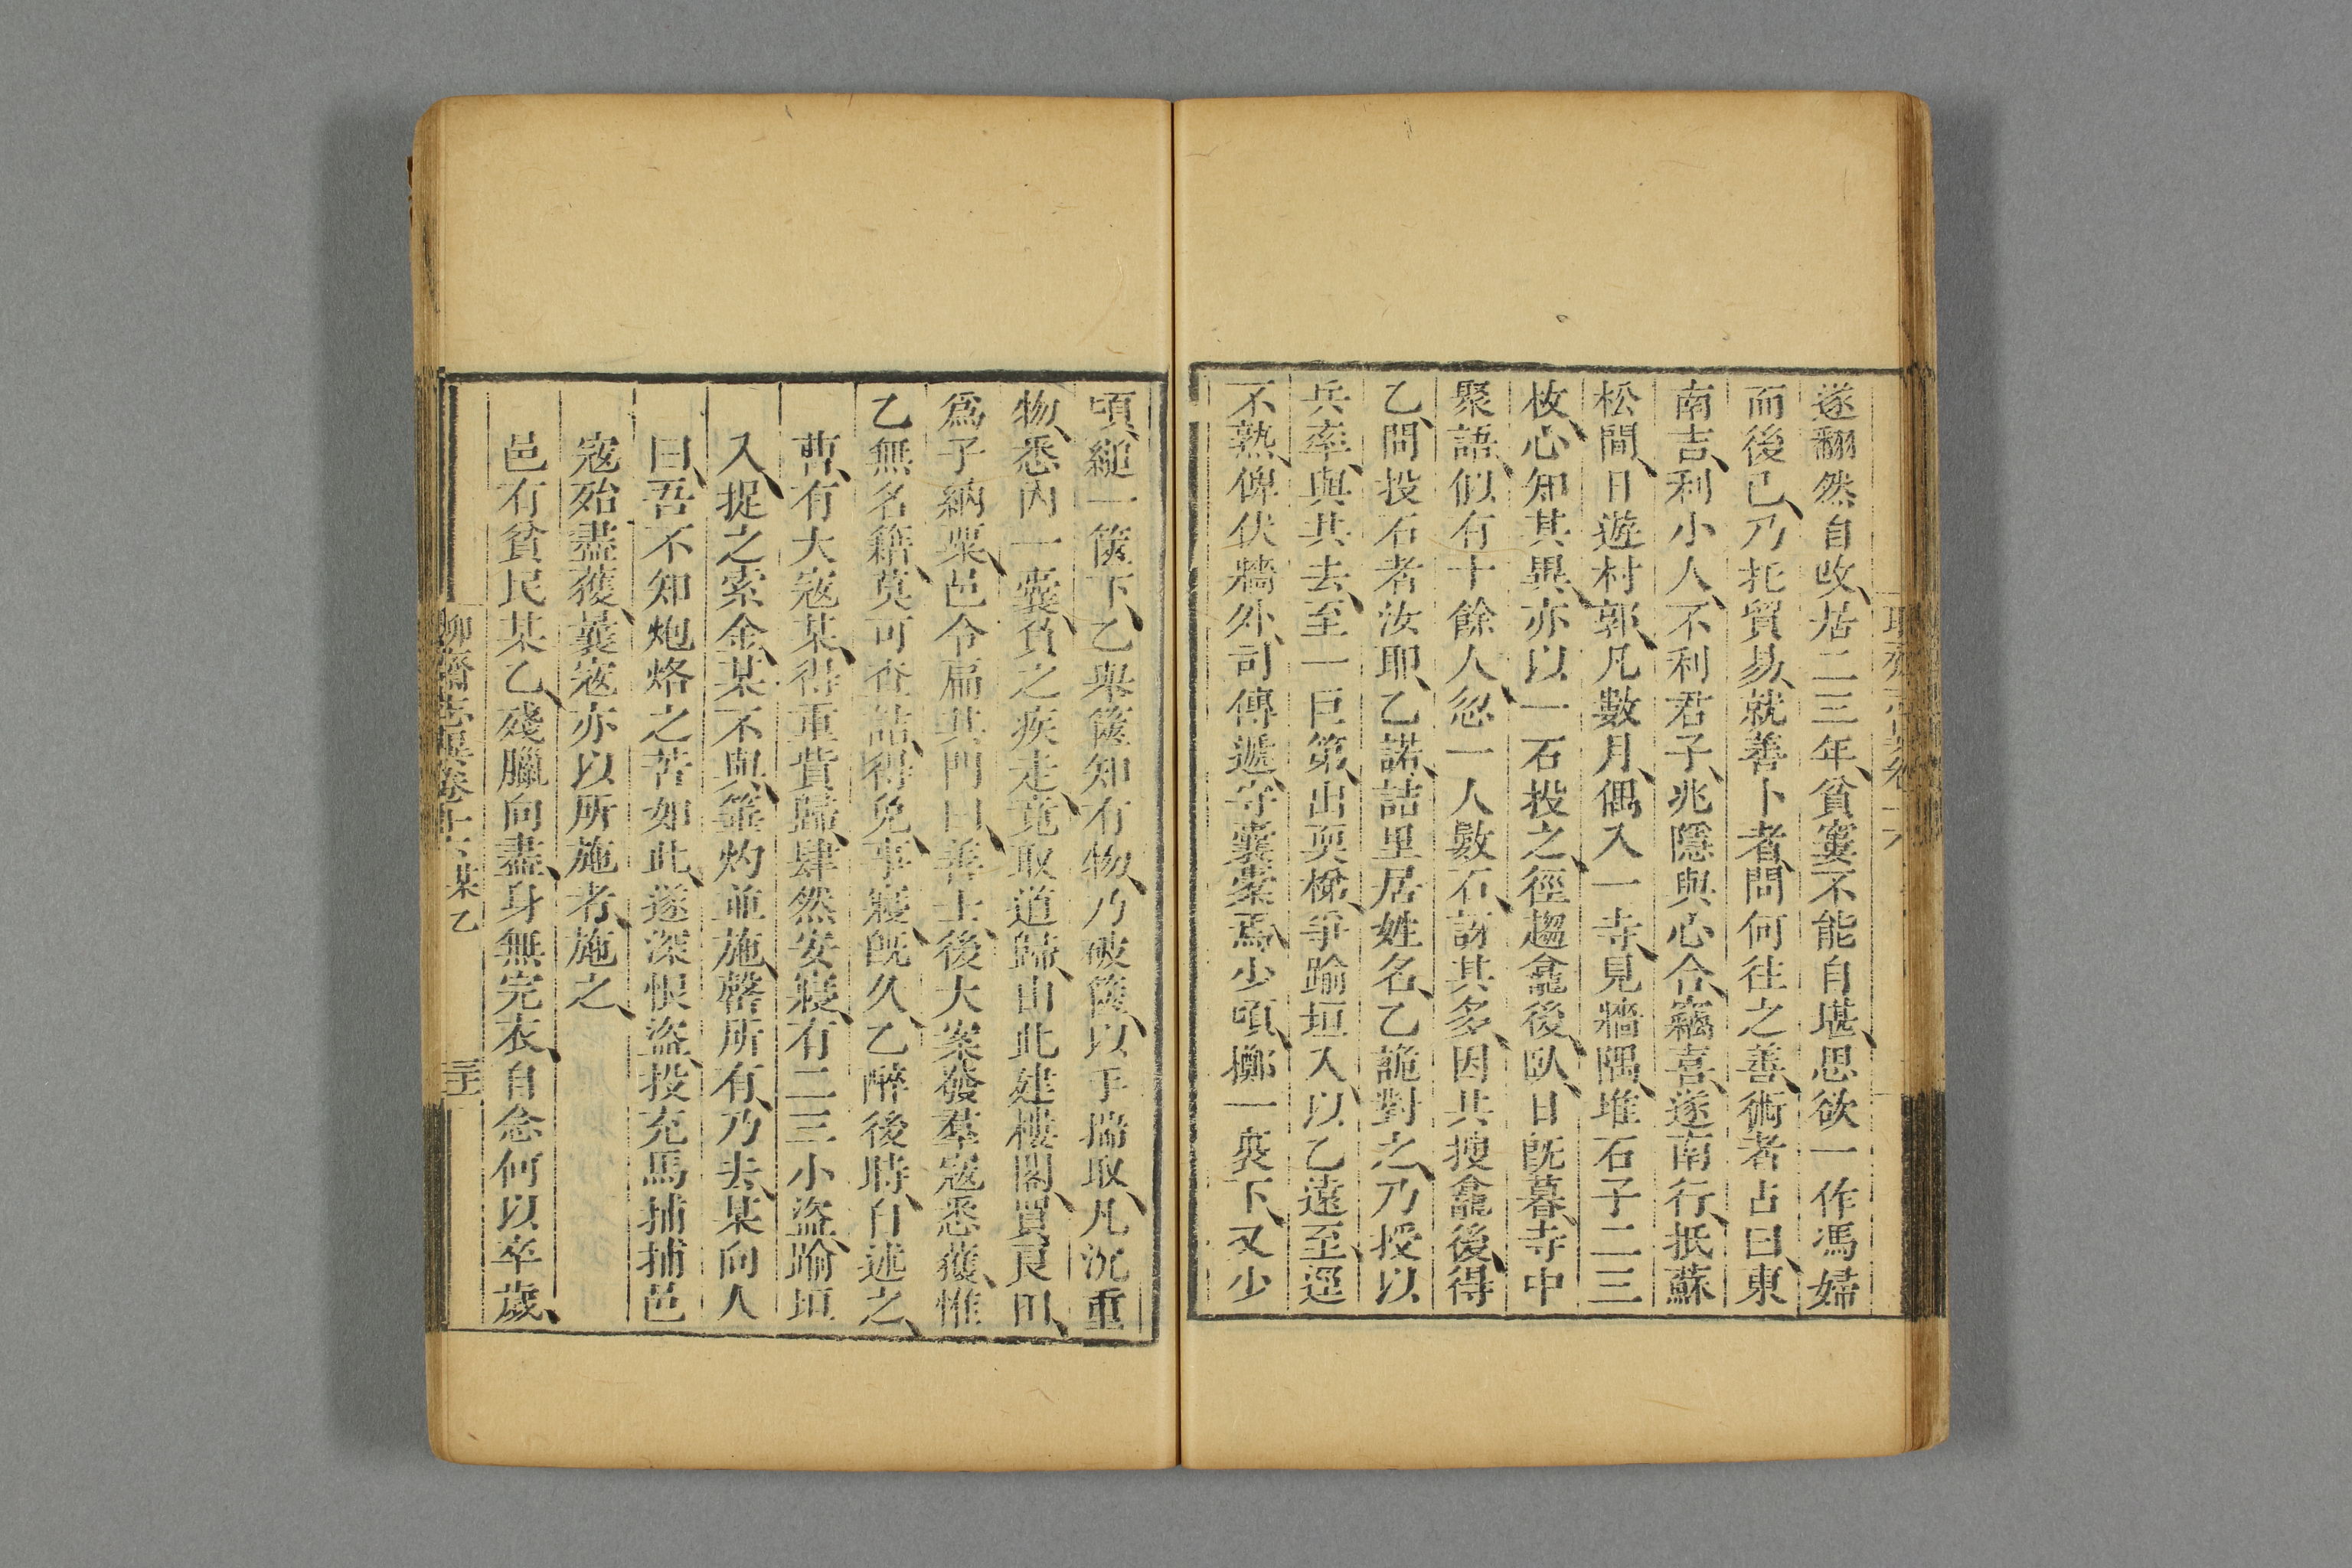 遂翻然自改、居二三年、貧窶不能自堪、思欲一作馮婦
而後已、乃托貿易、就善卜者、問何往之善、術者占曰、東
南吉、利小人、不利君子、兆隱與心合、竊喜、遂南行、抵蘇
松間、日遊村郭、凡數月、偶入一寺、見牆隅、堆石子二三
枚、心知其異、亦以一石投之、徑趨龕後臥、日既暮、寺中
聚語、似有十餘人、忽一人數石、訝其多、因共搜龕後、得
乙、問投石者汝耶、乙諾、詰里居姓名、乙詭對之、乃授以
兵、率與共去、至一巨第、出耎梯、爭踰垣入、以乙遠至、逕
不熟、俾伏牆外、司傳遞、守囊橐焉、少頃、擲一裹下、又少
頃、縋一篋下、乙舉篋知有物、乃破篋、以手揣取、凡沉重
物、悉內一囊、負之疾走、竟取道歸、由此建樓閣、買良田、
爲子納粟、邑令扁其門曰、善士、後大案發、羣寇悉獲、惟
乙無名籍、莫可查詰、得免、事寢既久、乙醉後時、自述之、
曹、有大寇某、得重貲歸、肆然安寢、有二三小盜、踰垣
入、捉之索金、某不與、箠灼並施、罄所有、乃去、某向人
曰、吾不知炮烙之苦如此、遂深恨盜、投充馬捕、捕邑
寇殆盡、獲曩寇、亦以所施者、施之、
邑有貧民某乙、殘臘向盡、身無完衣、自念何以卒歲、
聊齋志異卷十六 某乙